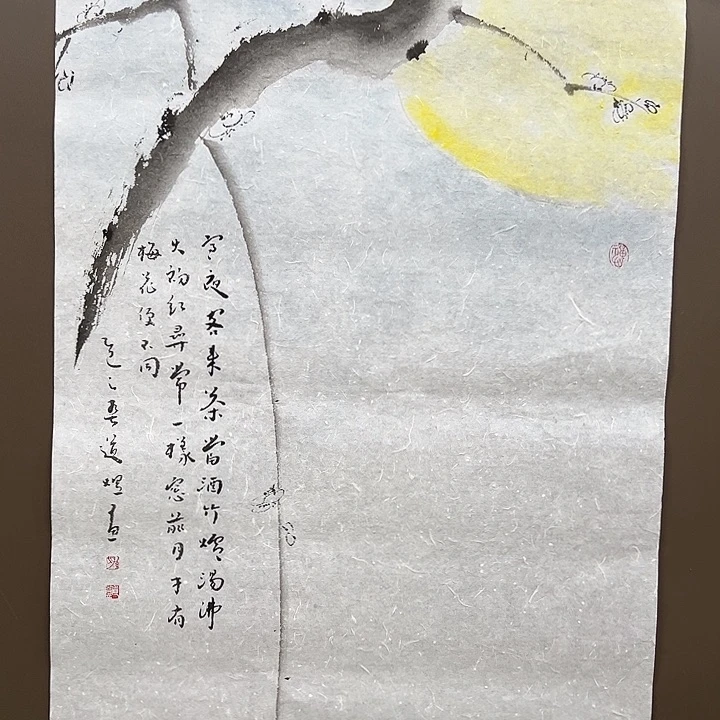 寒夜客来茶当酒竹炉汤沸
火初红尋常一樣窓前月才有
梅花便不同
道煜画